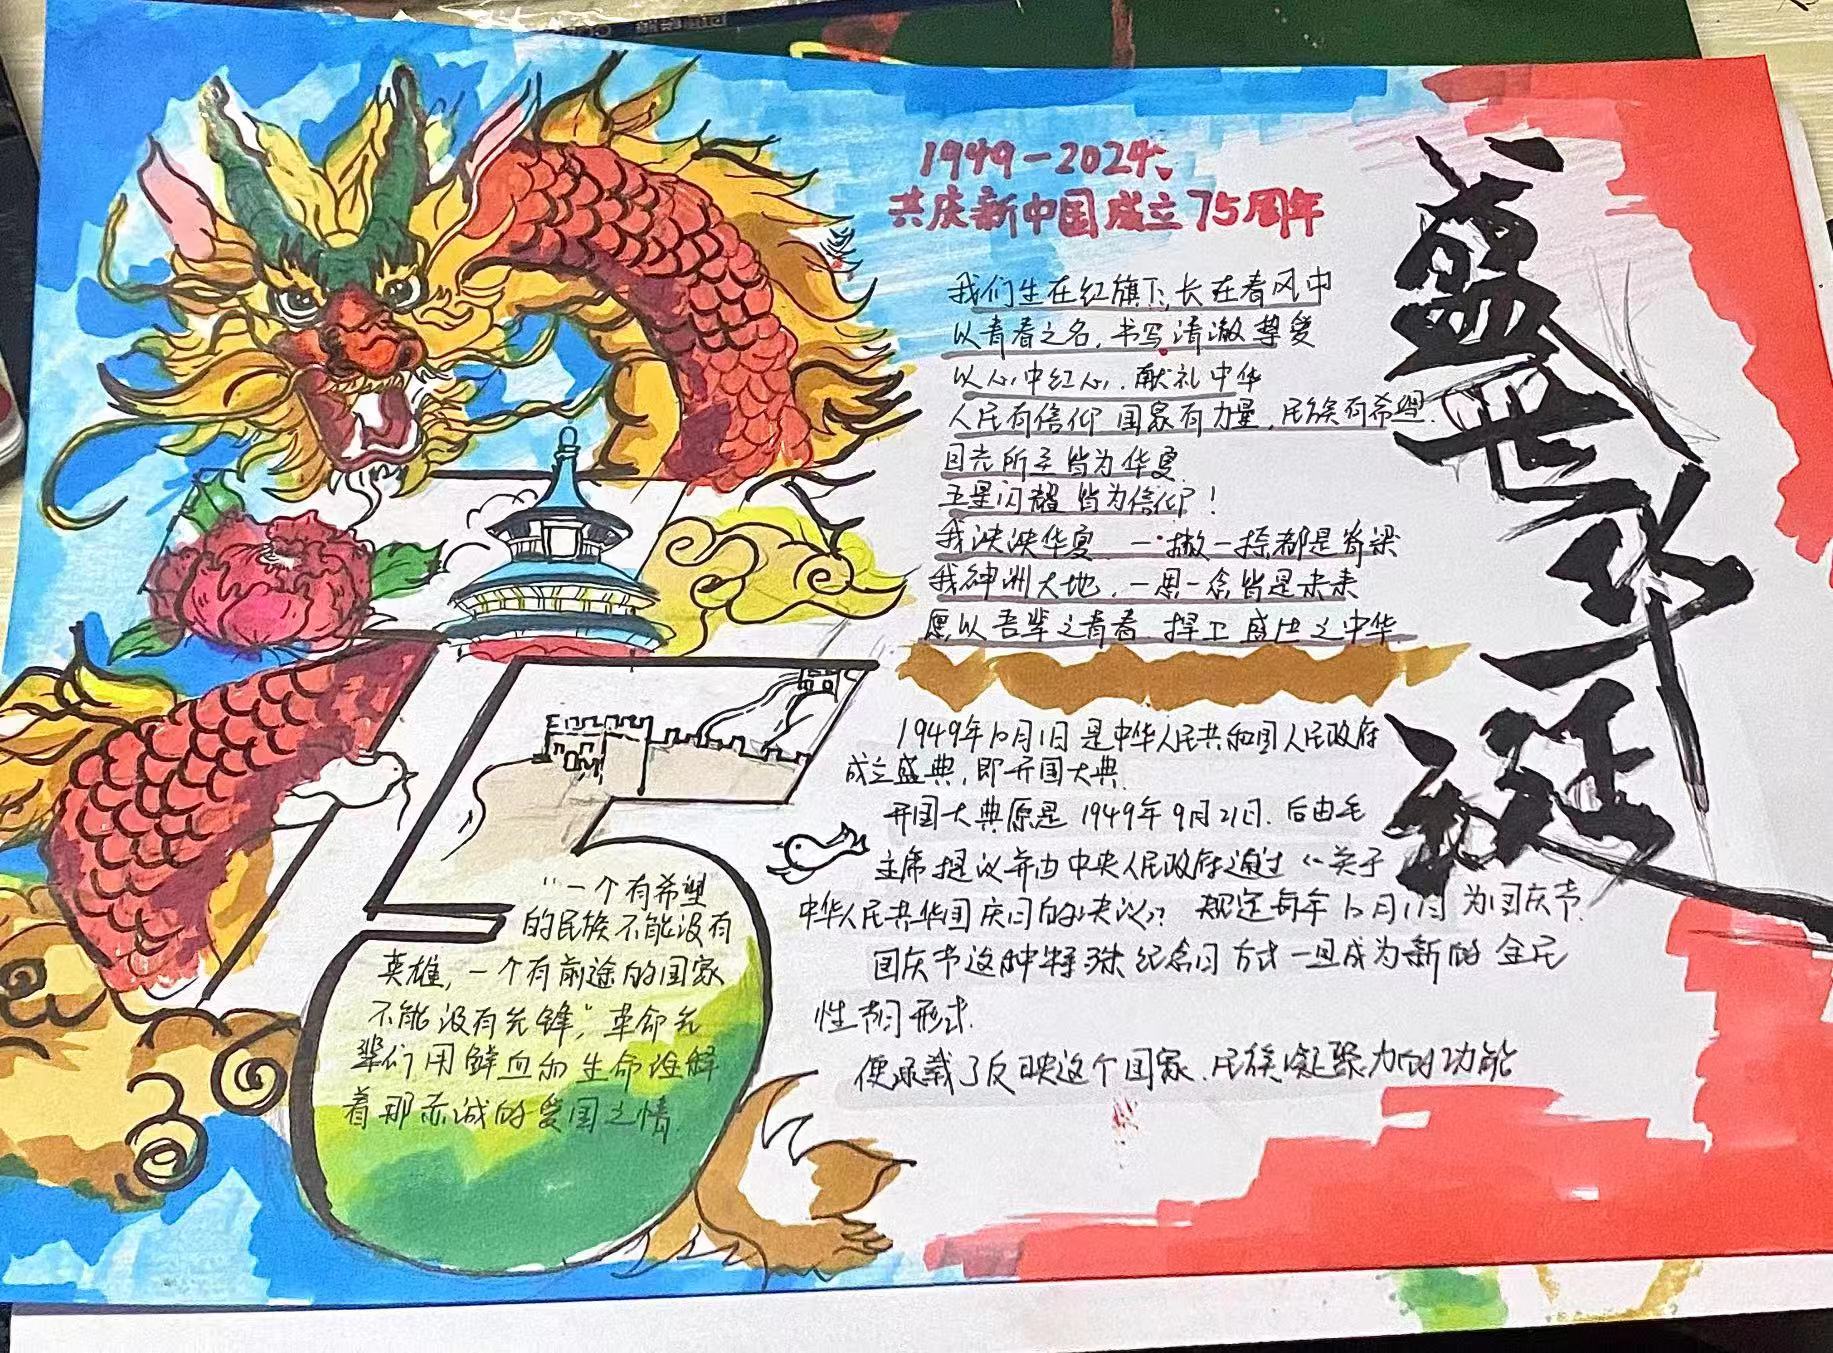 1949-2024、
共庆新中国成立75周年
盛世华诞
我们生在红旗下,长在春风中
以青春之名,书写清澈挚爱
以心中红心,献礼中华
人民有信仰 国家有力量,民族有希望.
目光所至皆为华夏
五星闪耀 皆为信仰!
我泱泱华夏 一撇一捺都是脊梁
我神洲大地,一思一念皆是未来
愿以吾辈之青春 捍卫盛世之中华
1949年10月1日是中华人民共和国人民政府
成立盛典,即开国大典
开国大典原是1949年9月21日.后由毛
主席提议并由中央人民政府通过《关于
中华人民共华国庆日的决议》规定每年10月1日为国庆节.
国庆节这种特殊纪念日方式一旦成为新的全民
性节日形式.
便承载了反映这个国家.民族凝聚力的功能
"一个有希望
的民族不能没有
英雄,一个有前途的国家
不能没有先锋",革命先
辈们用鲜血和生命诠解
着那赤诚的爱国之情.